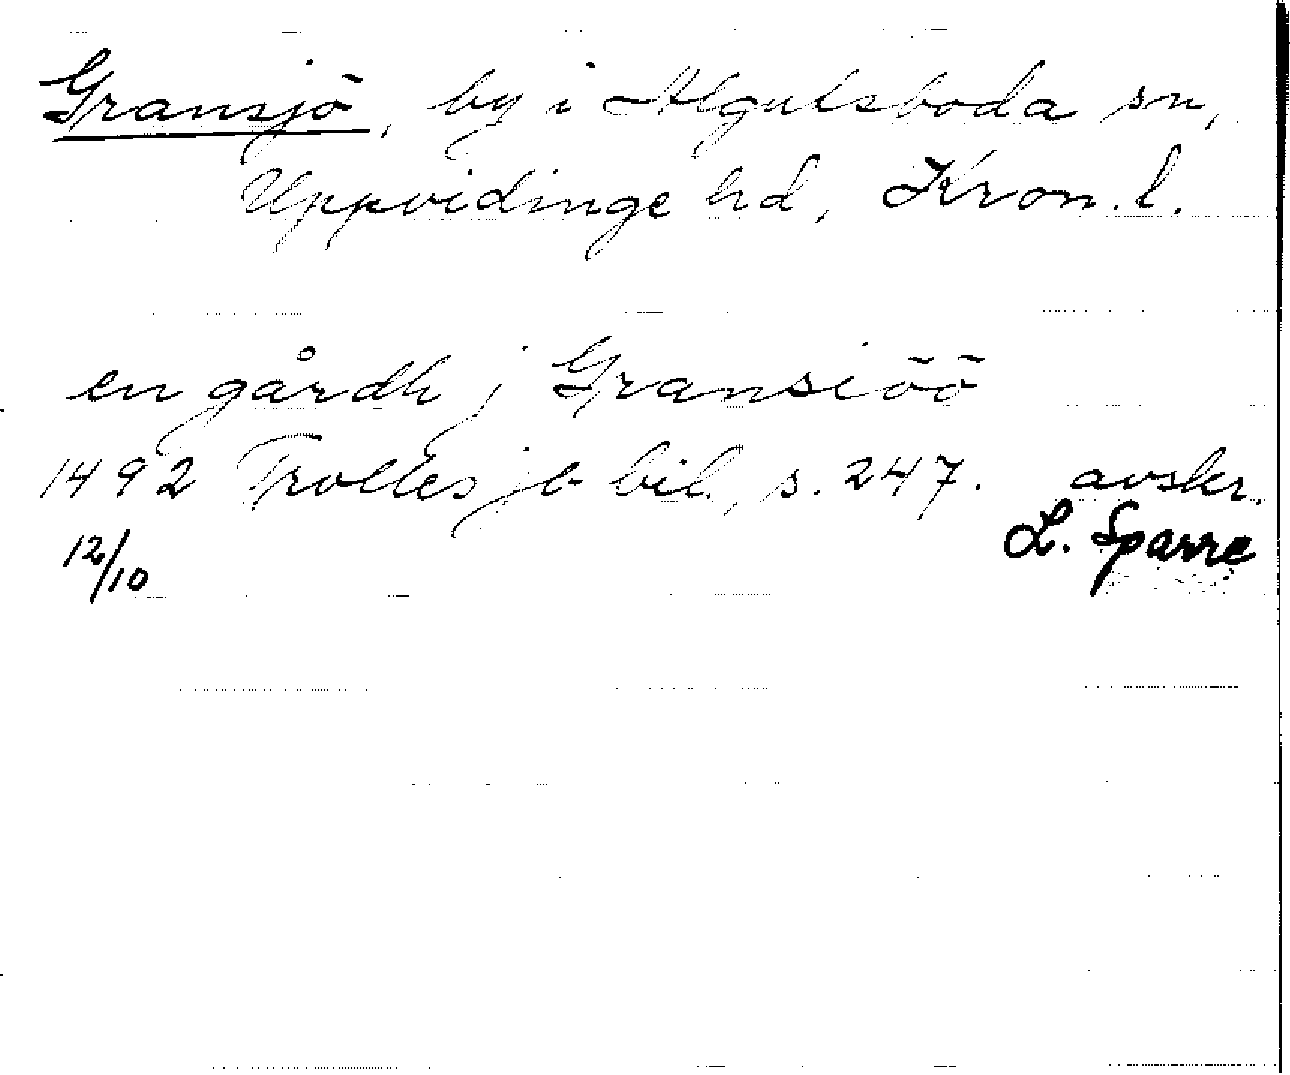 Gransjö, by i Algutsboda sn,
Uppvidinge hd, Kron. l.
en gårdh j Gransiöö
1492 Trolles jb bil., s. 247. avskr.
12/10 L. Sparre